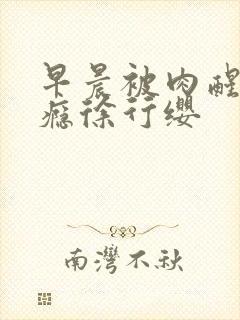 早晨被肉醒
瘾徐行缨
南灣不秋